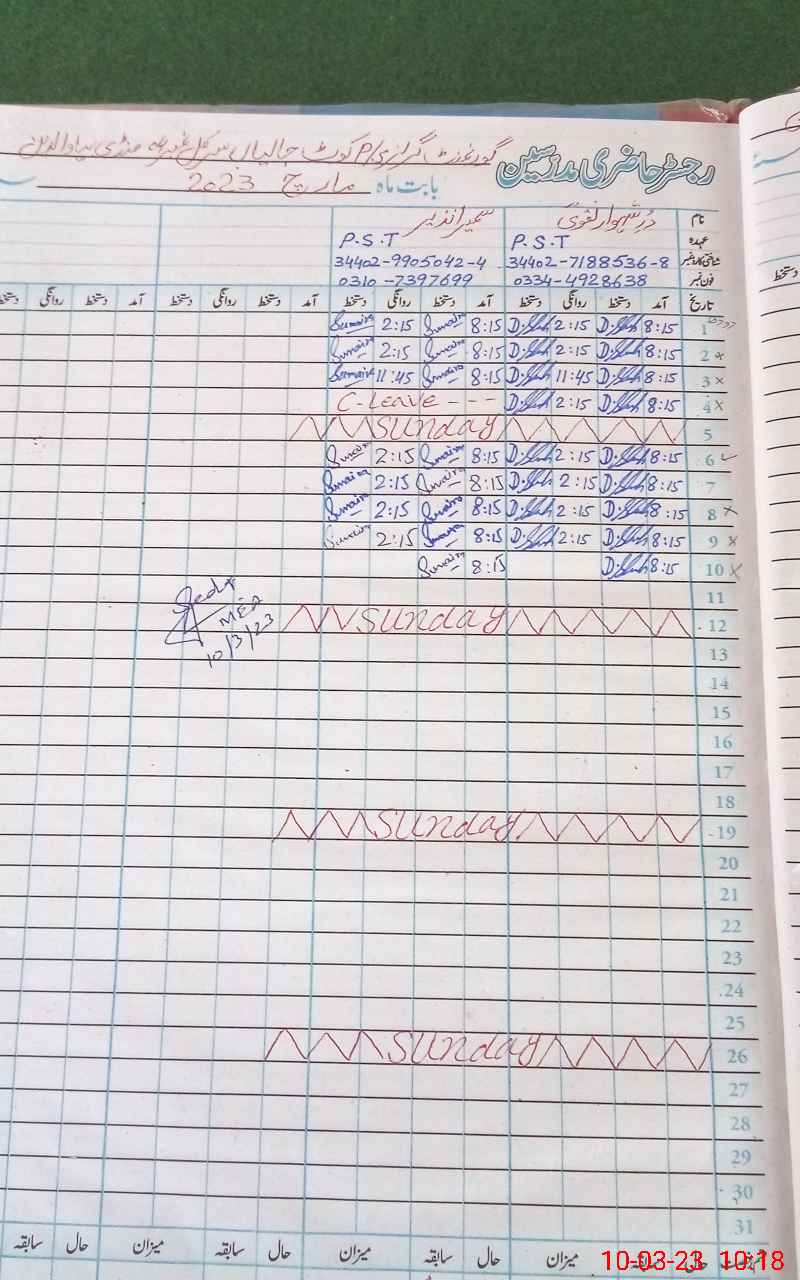 رجسٹر حاضری مدرسین گورنمنٹ گرلز P/ کوٹ جالیاں سرکل منڈی بہاؤالدین
بابت ماہ مارچ 2023
نام درِشہوار نقوی سمیرا نذیر
عہدہ P.S.T P.S.T
شناختی کارڈ نمبر 34402-7188536-8 34402-9905042-4
فون نمبر 0334-4928638 0310-7397699
تاریخ آمد دستخط روانگی دستخط آمد دستخط روانگی دستخط آمد دستخط روانگی دستخط آمد دستخط روانگی دستخط
1 8:15 2:15 8:15 Sumaira 2:15 Sumaira
2 8:15 2:15 8:15 Sumaira 2:15 Sumaira
3 8:15 11:45 8:15 Sumaira 11:45 Sumaira
4 8:15 2:15 C-Leave ---
5 Sunday
6 8:15 2:15 8:15 Sumaira 2:15 Sumaira
7 8:15 2:15 8:15 Sumaira 2:15 Sumaira
8 8:15 2:15 8:15 Sumaira 2:15 Sumaira
9 8:15 2:15 8:15 Sumaira 2:15 Sumaira
10 8:15 8:15 Sumaira
11
12 Sunday
MEA
10/3/23
13
14
15
16
17
18
19 Sunday
20
21
22
23
24
25
26 Sunday
27
28
29
30
31
حال سابقہ میزان حال سابقہ میزان حال سابقہ میزان حال سابقہ
10-03-23 10:18